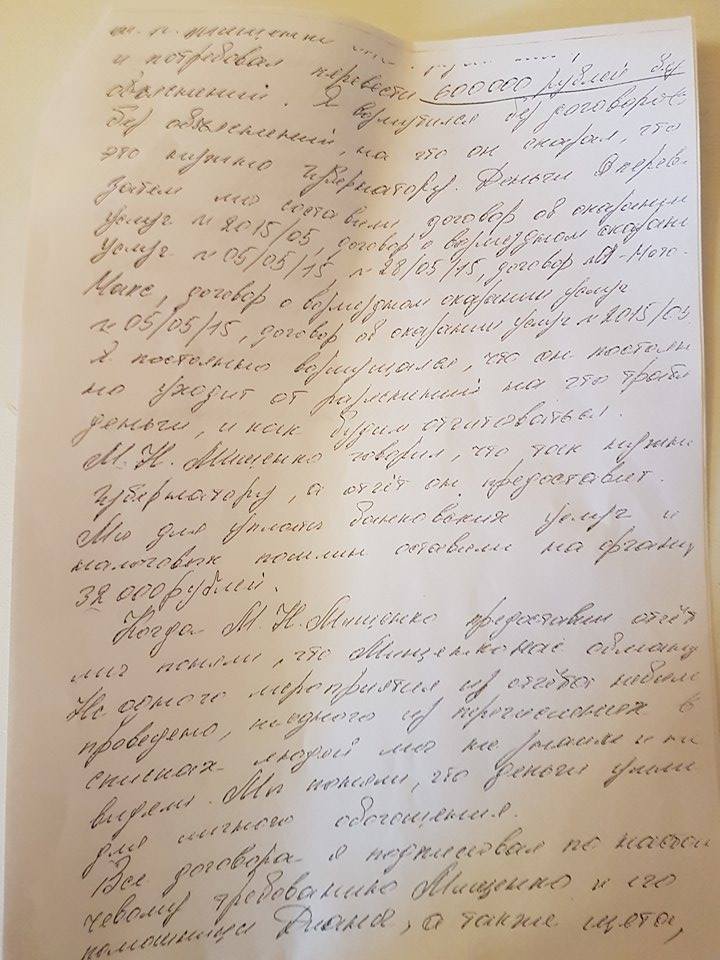 и потребовал перевести 600 000 рублей без
объяснений. Я возмутился без договоров
без объяснений, на что он сказал, что
это нужно губернатору. Деньги я перев
Затем мы составили договор об оказании
услуг № 2015/05, договор о возмездном оказани
услуг № 05/05/15, № 28/05/15, договор Мото-
Макс, договор о возмездном оказании услуг
№ 05/05/15, договор об оказании услуг № 2015/05.
Я постоянно возмущался, что он постоян
но уходит от разяснений на что тратя
деньги, и как будим отчитоваться.
М. Н. Мищенко говорил, что так нужно
губернатору, а отчёт он предоставит.
Мы для уплаты банковских услуг и
налоговых пошлин оставили на органи
32 000 рублей.
Когда М. Н. Мищенко предоставил отчёт
мы поняли, что Мищенко нас обману
Не одного мероприятия из отчёта небыло
проведено, ниодного из перечисленых в
списках людей мы не знали и ни
видели. Мы поняли, что деньги ушли
для личного обогощения.
Все договора я подписовал по настой
чевому требованию Мищенко и его
помощници Дианы, а также щета,